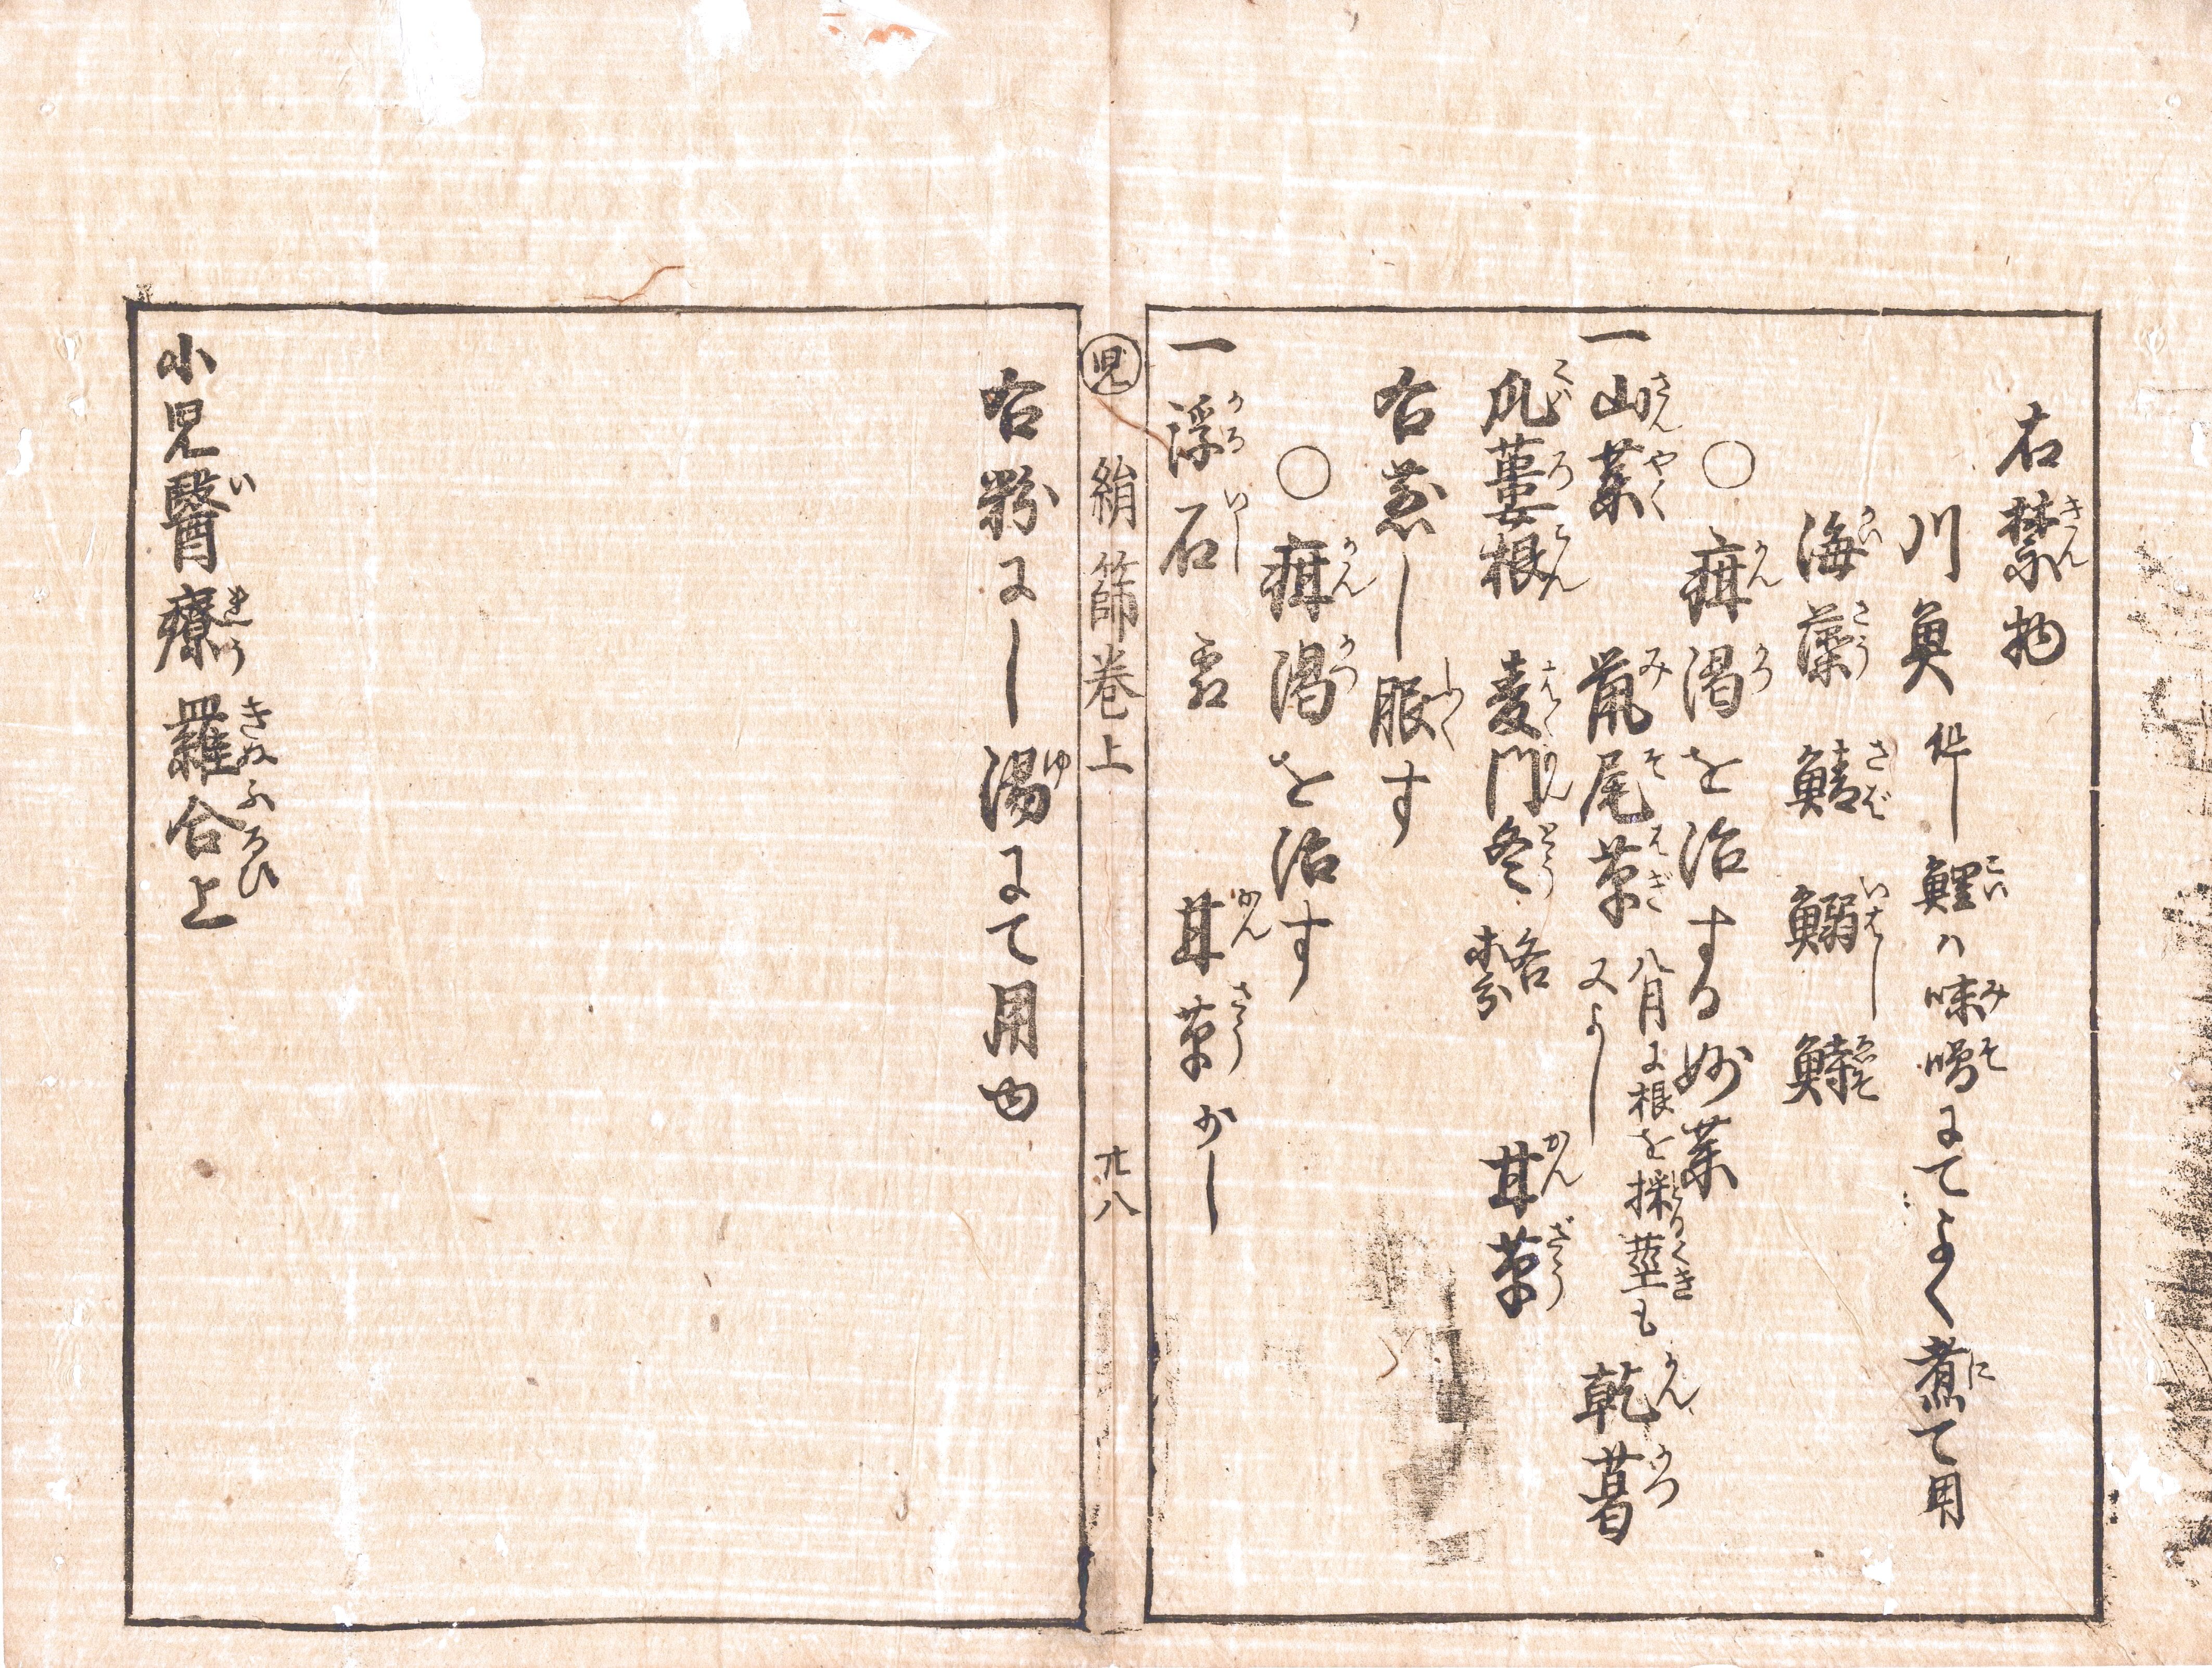 右禁物
川魚 但し鯉ハ味噌にてよく煮て用
海藻 鯖 鰯 鱚
○疳渇を治する妙薬
一山薬 鼠尾草 八月に根を採茎も又よし 乾葛
瓜蔞根 麦門冬 各等分 甘草
右煎し服す
○疳渇を治す
一浮石 壱匁 甘草少し
児 絹篩巻上 廿八
右粉にし湯にて用ゆ
小児醫療羅合上